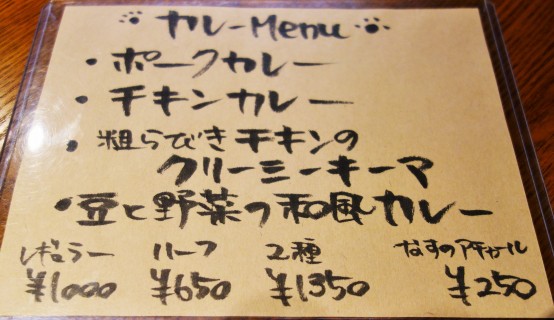 カレーMenu
・ポークカレー
・チキンカレー
・粗らびきチキンの
クリーミーキーマ
・豆と野菜の和風カレー
レギュラー ハーフ 2種 なすのアチャール
¥1000 ¥650 ¥1350 ¥250